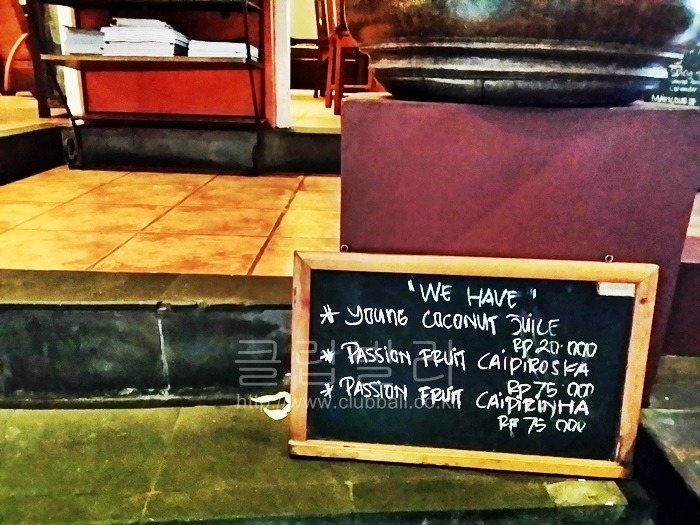 "WE HAVE"
* YOUNG COCONUT JUICE
RP 20.000
* PASSION FRUIT CAIPIROSKA
RP 75.000
* PASSION FRUIT CAIPIRINHA
RP 75 000
클럽발리
http://www.clubbali.co.kr